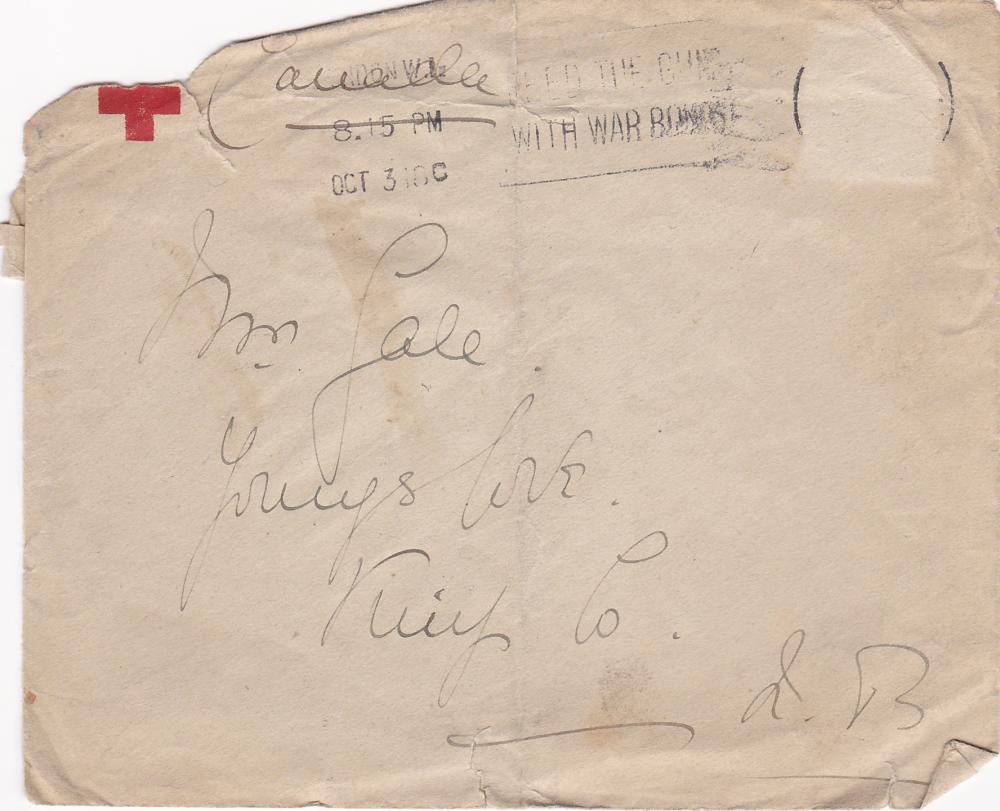 (Canada)
LONDON W.1.
8.15 PM
OCT 3 18 C
FEED THE GUNS
WITH WAR BONDS
Mrs Gale.
Youngs Cove.
Kings Co.
N.B